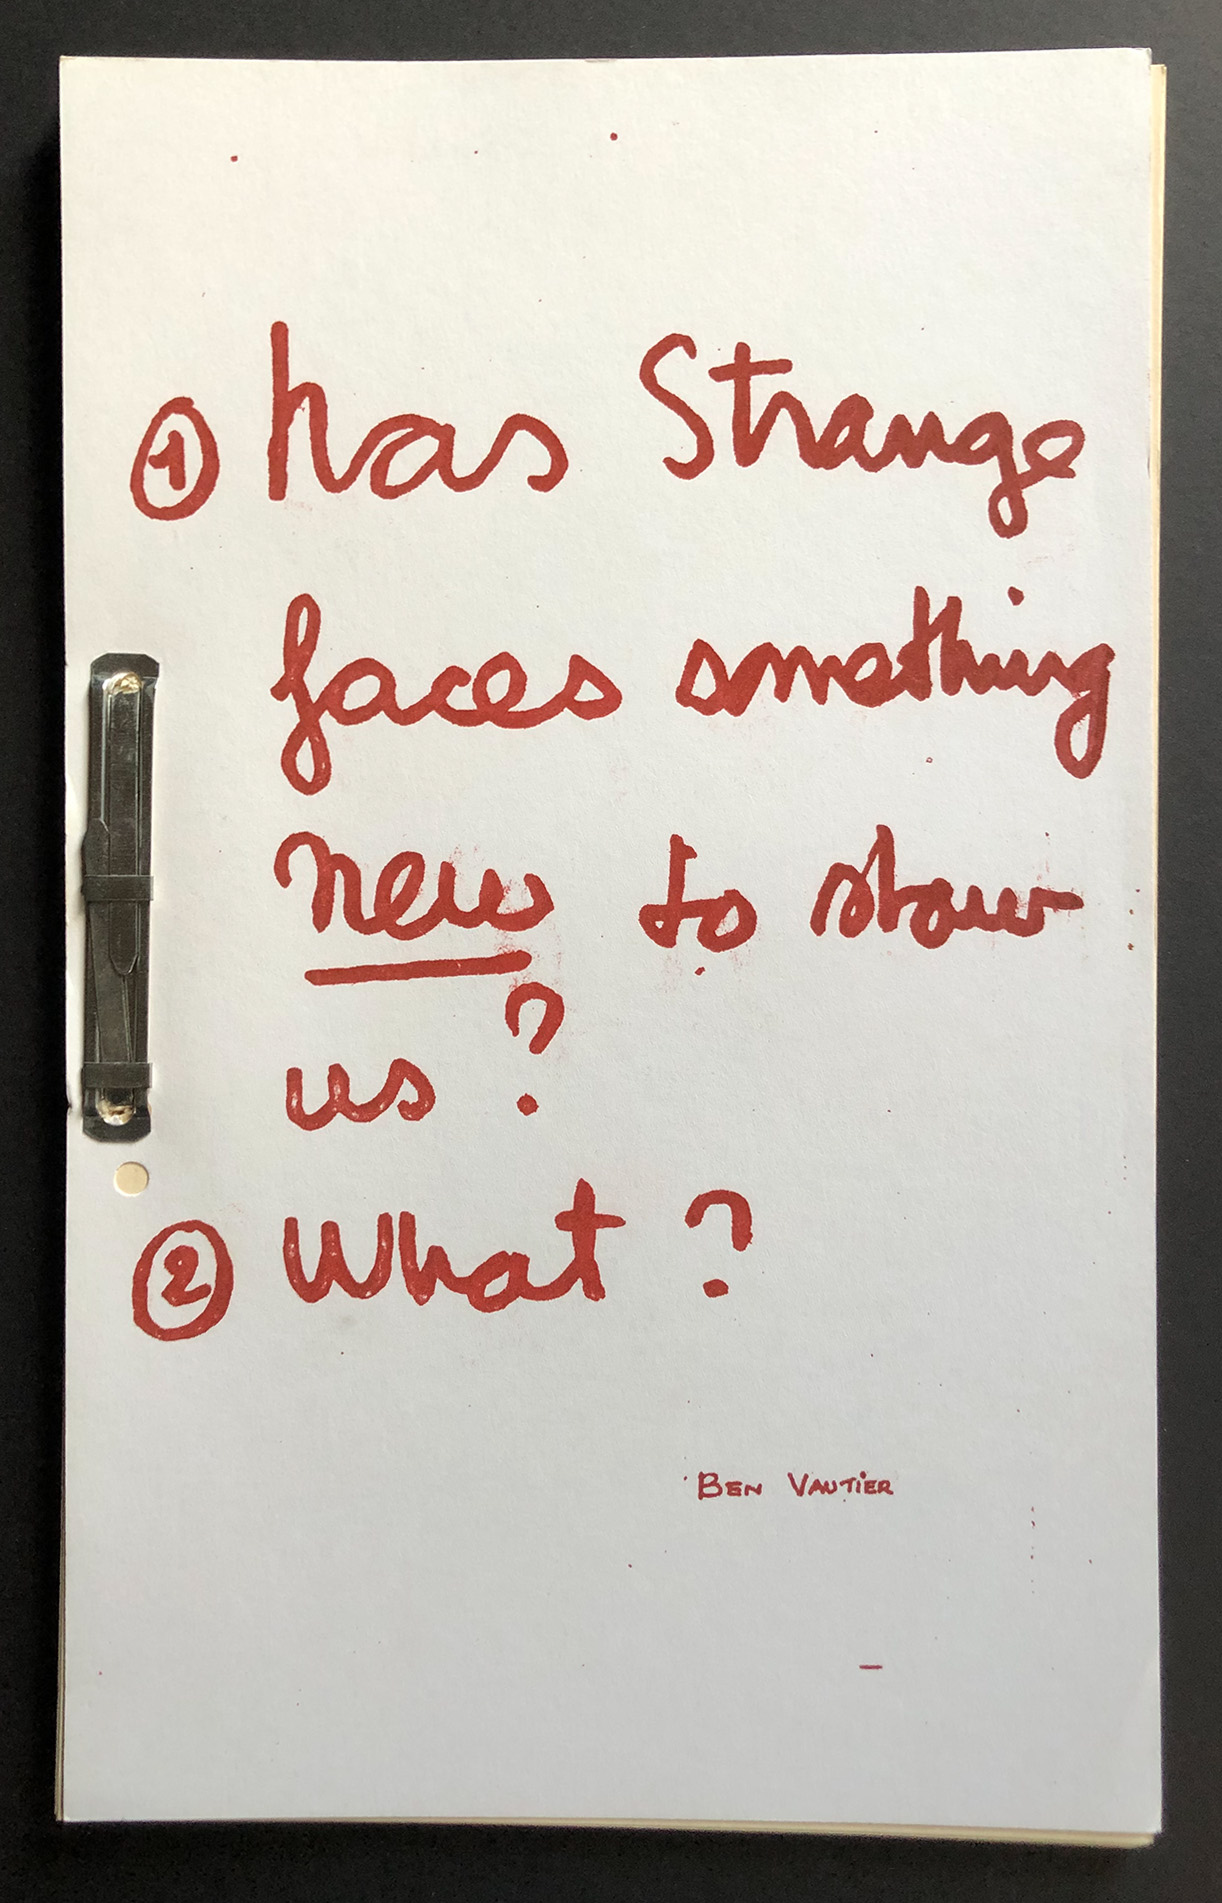 ① has Strange
faces something
new to show
us ?
② What ?
BEN VAUTIER